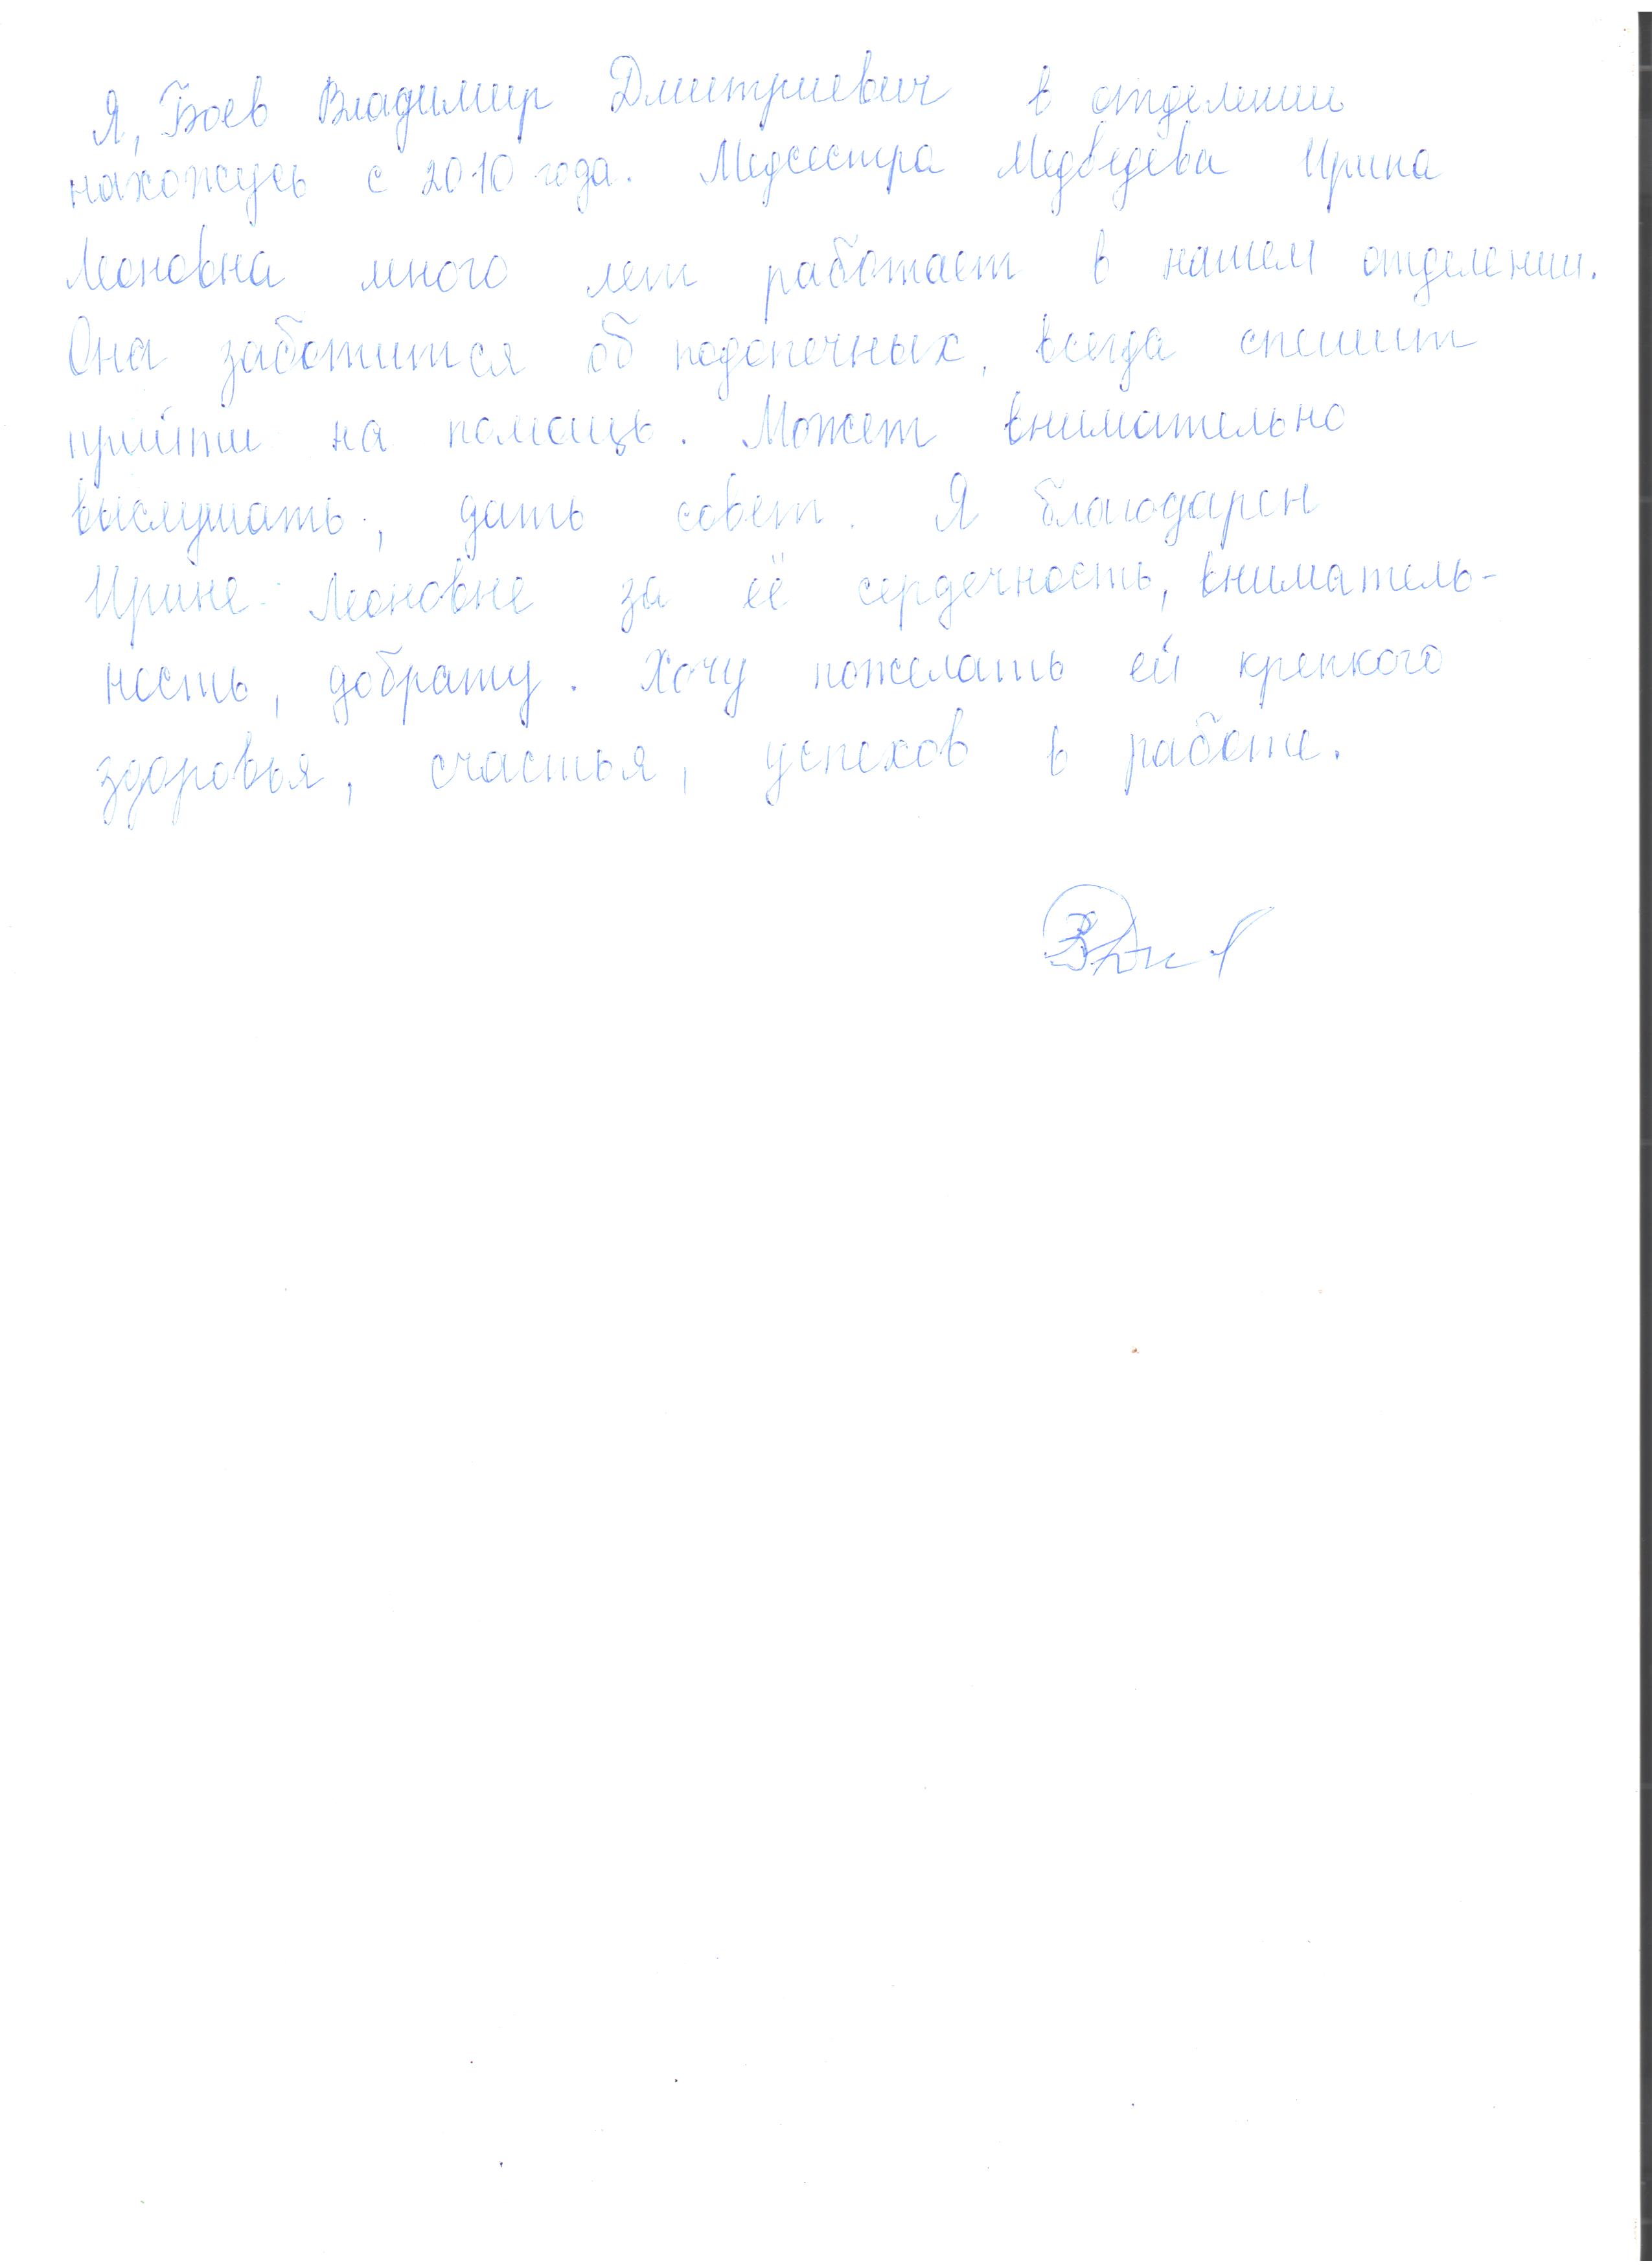 Я, Боев Владимир Дмитриевич в отделении
нахожусь с 2010 года. Медсестра Медведева Ирина
Леоновна много лет работает в нашем отделении.
Она заботится об подопечных, всегда спешит
прийти на помощь. Может внимательно
выслушать, дать совет. Я благодарен
Ирине Леоновне за её сердечность, вниматель-
ность, доброту. Хочу пожелать ей крепкого
здоровья, счастья, успехов в работе.